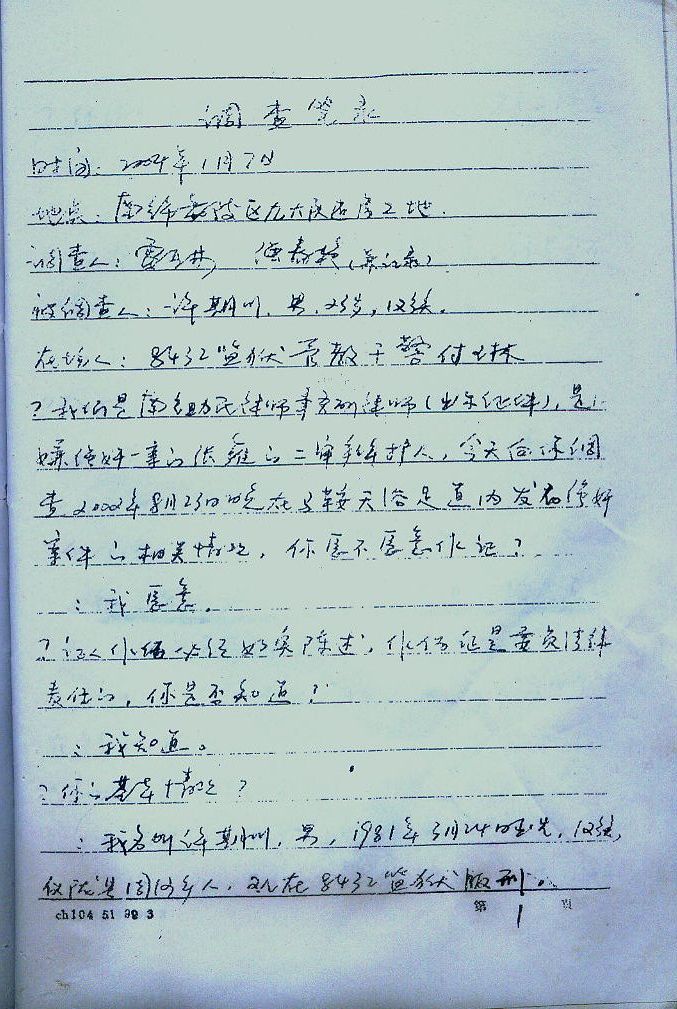 调查笔录
时间：2004年1月7日
地点：南 区九大队 工地.
调查人：雷 ，
被调查人：许期州，男，23岁，汉族。
在场人：8432监狱管教干警付林
？我们是南 助民律师事务所律师（出示证件），是
嫌强奸一案的 的二审辩护人，今天向你调
查2002年8月23日晚在 天浴足道内发生强奸
案件的相关情况，你愿不愿意作证？
：我愿意。
？证人作证必须如实陈述，作伪证是要负法律
责任的，你是否知道？
：我知道。
？你的基本情况？
：我名叫许期州，男，1981年 月24日出生，汉族，
仪陇县 乡人，现在8432监狱服刑。
ch104 51 99 3 第 1 页